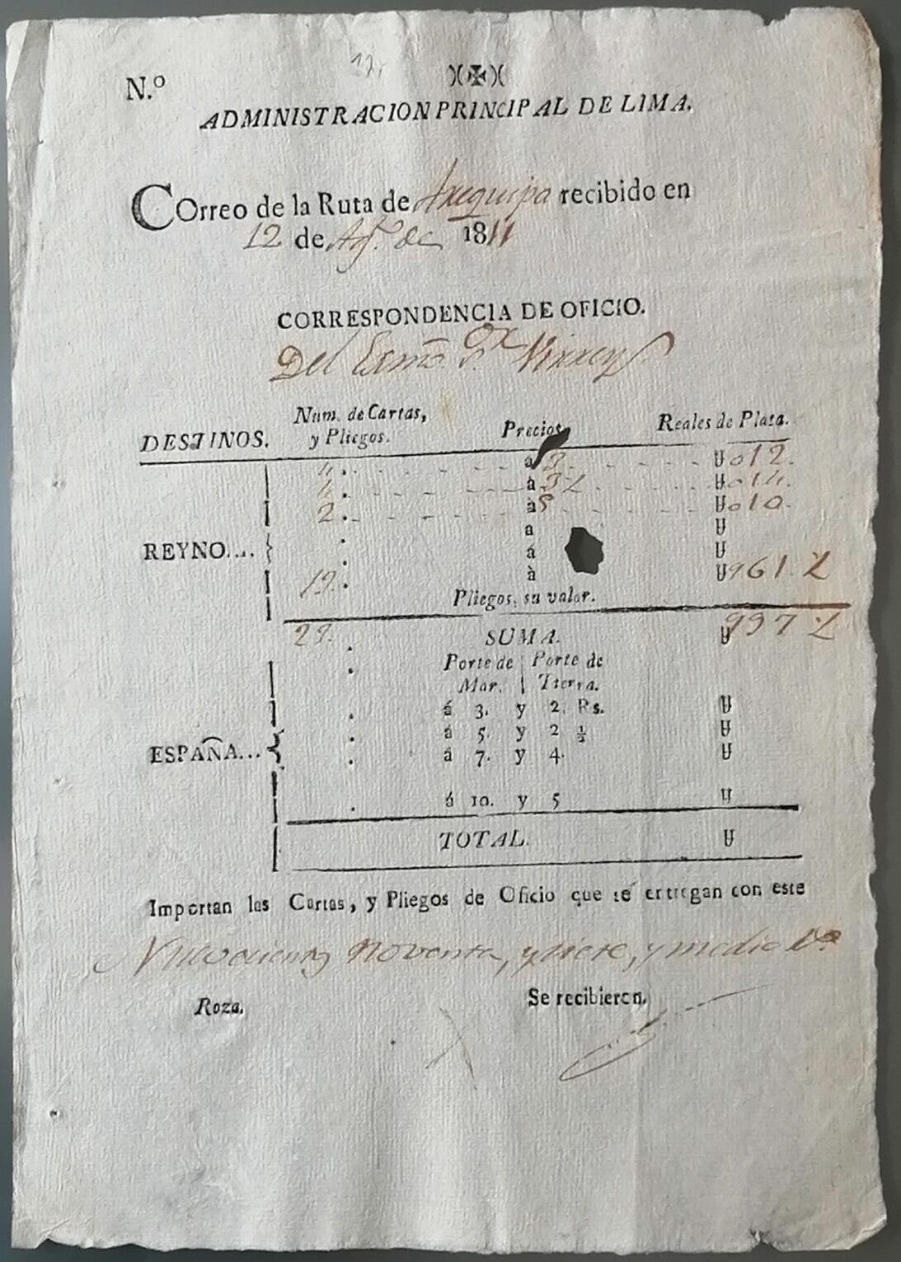 N.º
ADMINISTRACION PRINCIPAL DE LIMA.
COrreo de la Ruta de Arequipa recibido en
12 de Agᵗᵒ de 1811
CORRESPONDENCIA DE OFICIO.
Del Exmo. S.ᵒʳ Virrey
DESTINOS. Num. de Cartas, y Pliegos. Precios. Reales de Plata.
4. à 3 U 012.
4. à 3 ½ U 014.
2. à 5 U 010.
. a U
REYNO.... . á U
19. à U 961. ½
Pliegos, su valor.
29. SUMA. U 997 ½
Porte de Mar. | Porte de Tierra.
. á 3. y 2. Rs. U
. á 5. y 2 ½ U
ESPAÑA... . á 7. y 4. U
. á 10. y 5 U
TOTAL. U
Importan las Cartas, y Pliegos de Oficio que se entregan con este
Novecientos noventa, y siete, y medio r.ˢ
Roza. Se recibieron.